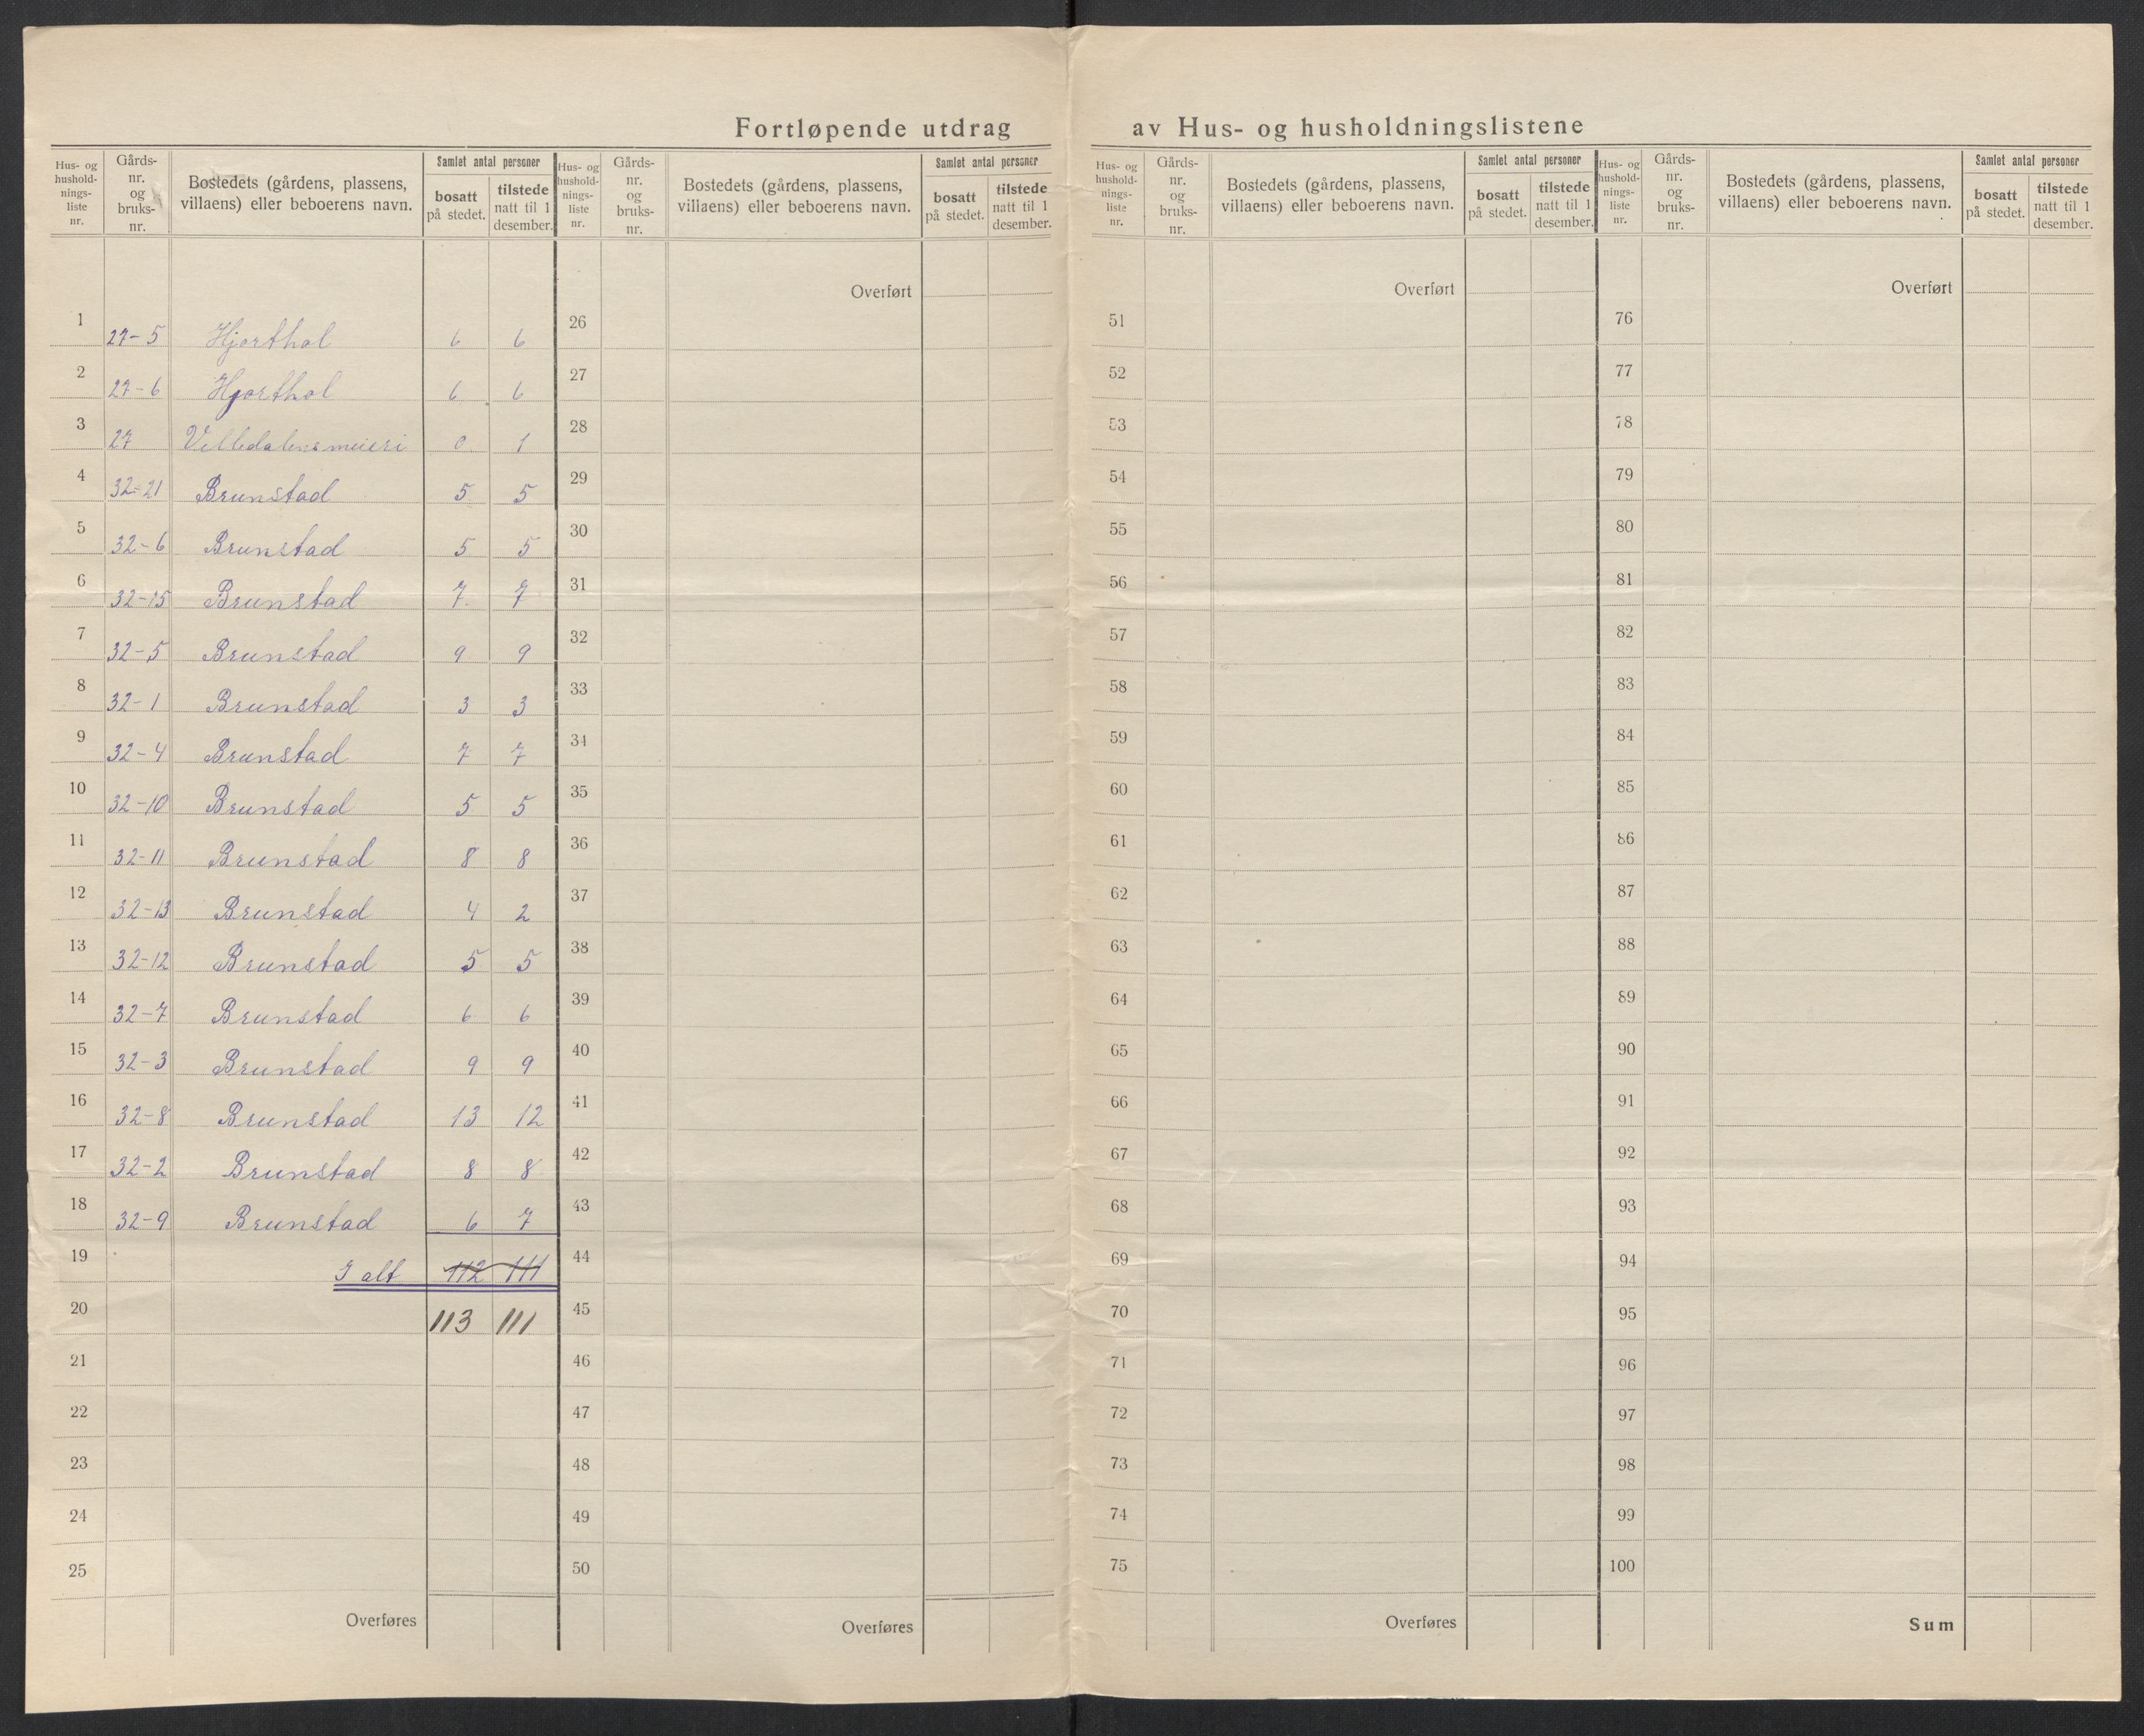 Fortløpende utdrag av Hus- og husholdningslistene
Hus- og hushold- nings- liste nr. Gårds- nr. og bruks- nr. Bostedets (gårdens, plassens, villaens) eller beboerens navn. Samlet antal personer bosatt på stedet. tilstede natt til 1 desember.
Hus- og hushold- nings- liste nr. Gårds- nr. og bruks- nr. Bostedets (gårdens, plassens, villaens) eller beboerens navn. Samlet antal personer bosatt på stedet. tilstede natt til 1 desember.
Hus- og hushold- nings- liste nr. Gårds- nr. og bruks- nr. Bostedets (gårdens, plassens, villaens) eller beboerens navn. Samlet antal personer bosatt på stedet. tilstede natt til 1 desember.
Hus- og hushold- nings- liste nr. Gårds- nr. og bruks- nr. Bostedets (gårdens, plassens, villaens) eller beboerens navn. Samlet antal personer bosatt på stedet. tilstede natt til 1 desember.
1 27-5 Hjorthol 6 6
2 27-6 Hjorthol 6 6
3 27 Velledalens meieri 0 1
4 32-21 Brunstad 5 5
5 32-6 Brunstad 5 5
6 32-15 Brunstad 7 7
7 32-5 Brunstad 9 9
8 32-1 Brunstad 3 3
9 32-4 Brunstad 7 7
10 32-10 Brunstad 5 5
11 32-11 Brunstad 8 8
12 32-13 Brunstad 4 2
13 32-12 Brunstad 5 5
14 32-7 Brunstad 6 6
15 32-3 Brunstad 9 9
16 32-8 Brunstad 13 12
17 32-2 Brunstad 8 8
18 32-9 Brunstad 6 7
19 I alt 112 111
20 113 111
21
22
23
24
25
Overføres
Overført
26
27
28
29
30
31
32
33
34
35
36
37
38
39
40
41
42
43
44
45
46
47
48
49
50
Overføres
Overført
51
52
53
54
55
56
57
58
59
60
61
62
63
64
65
66
67
68
69
70
71
72
73
74
75
Overføres
Overført
76
77
78
79
80
81
82
83
84
85
86
87
88
89
90
91
92
93
94
95
96
97
98
99
100
Sum